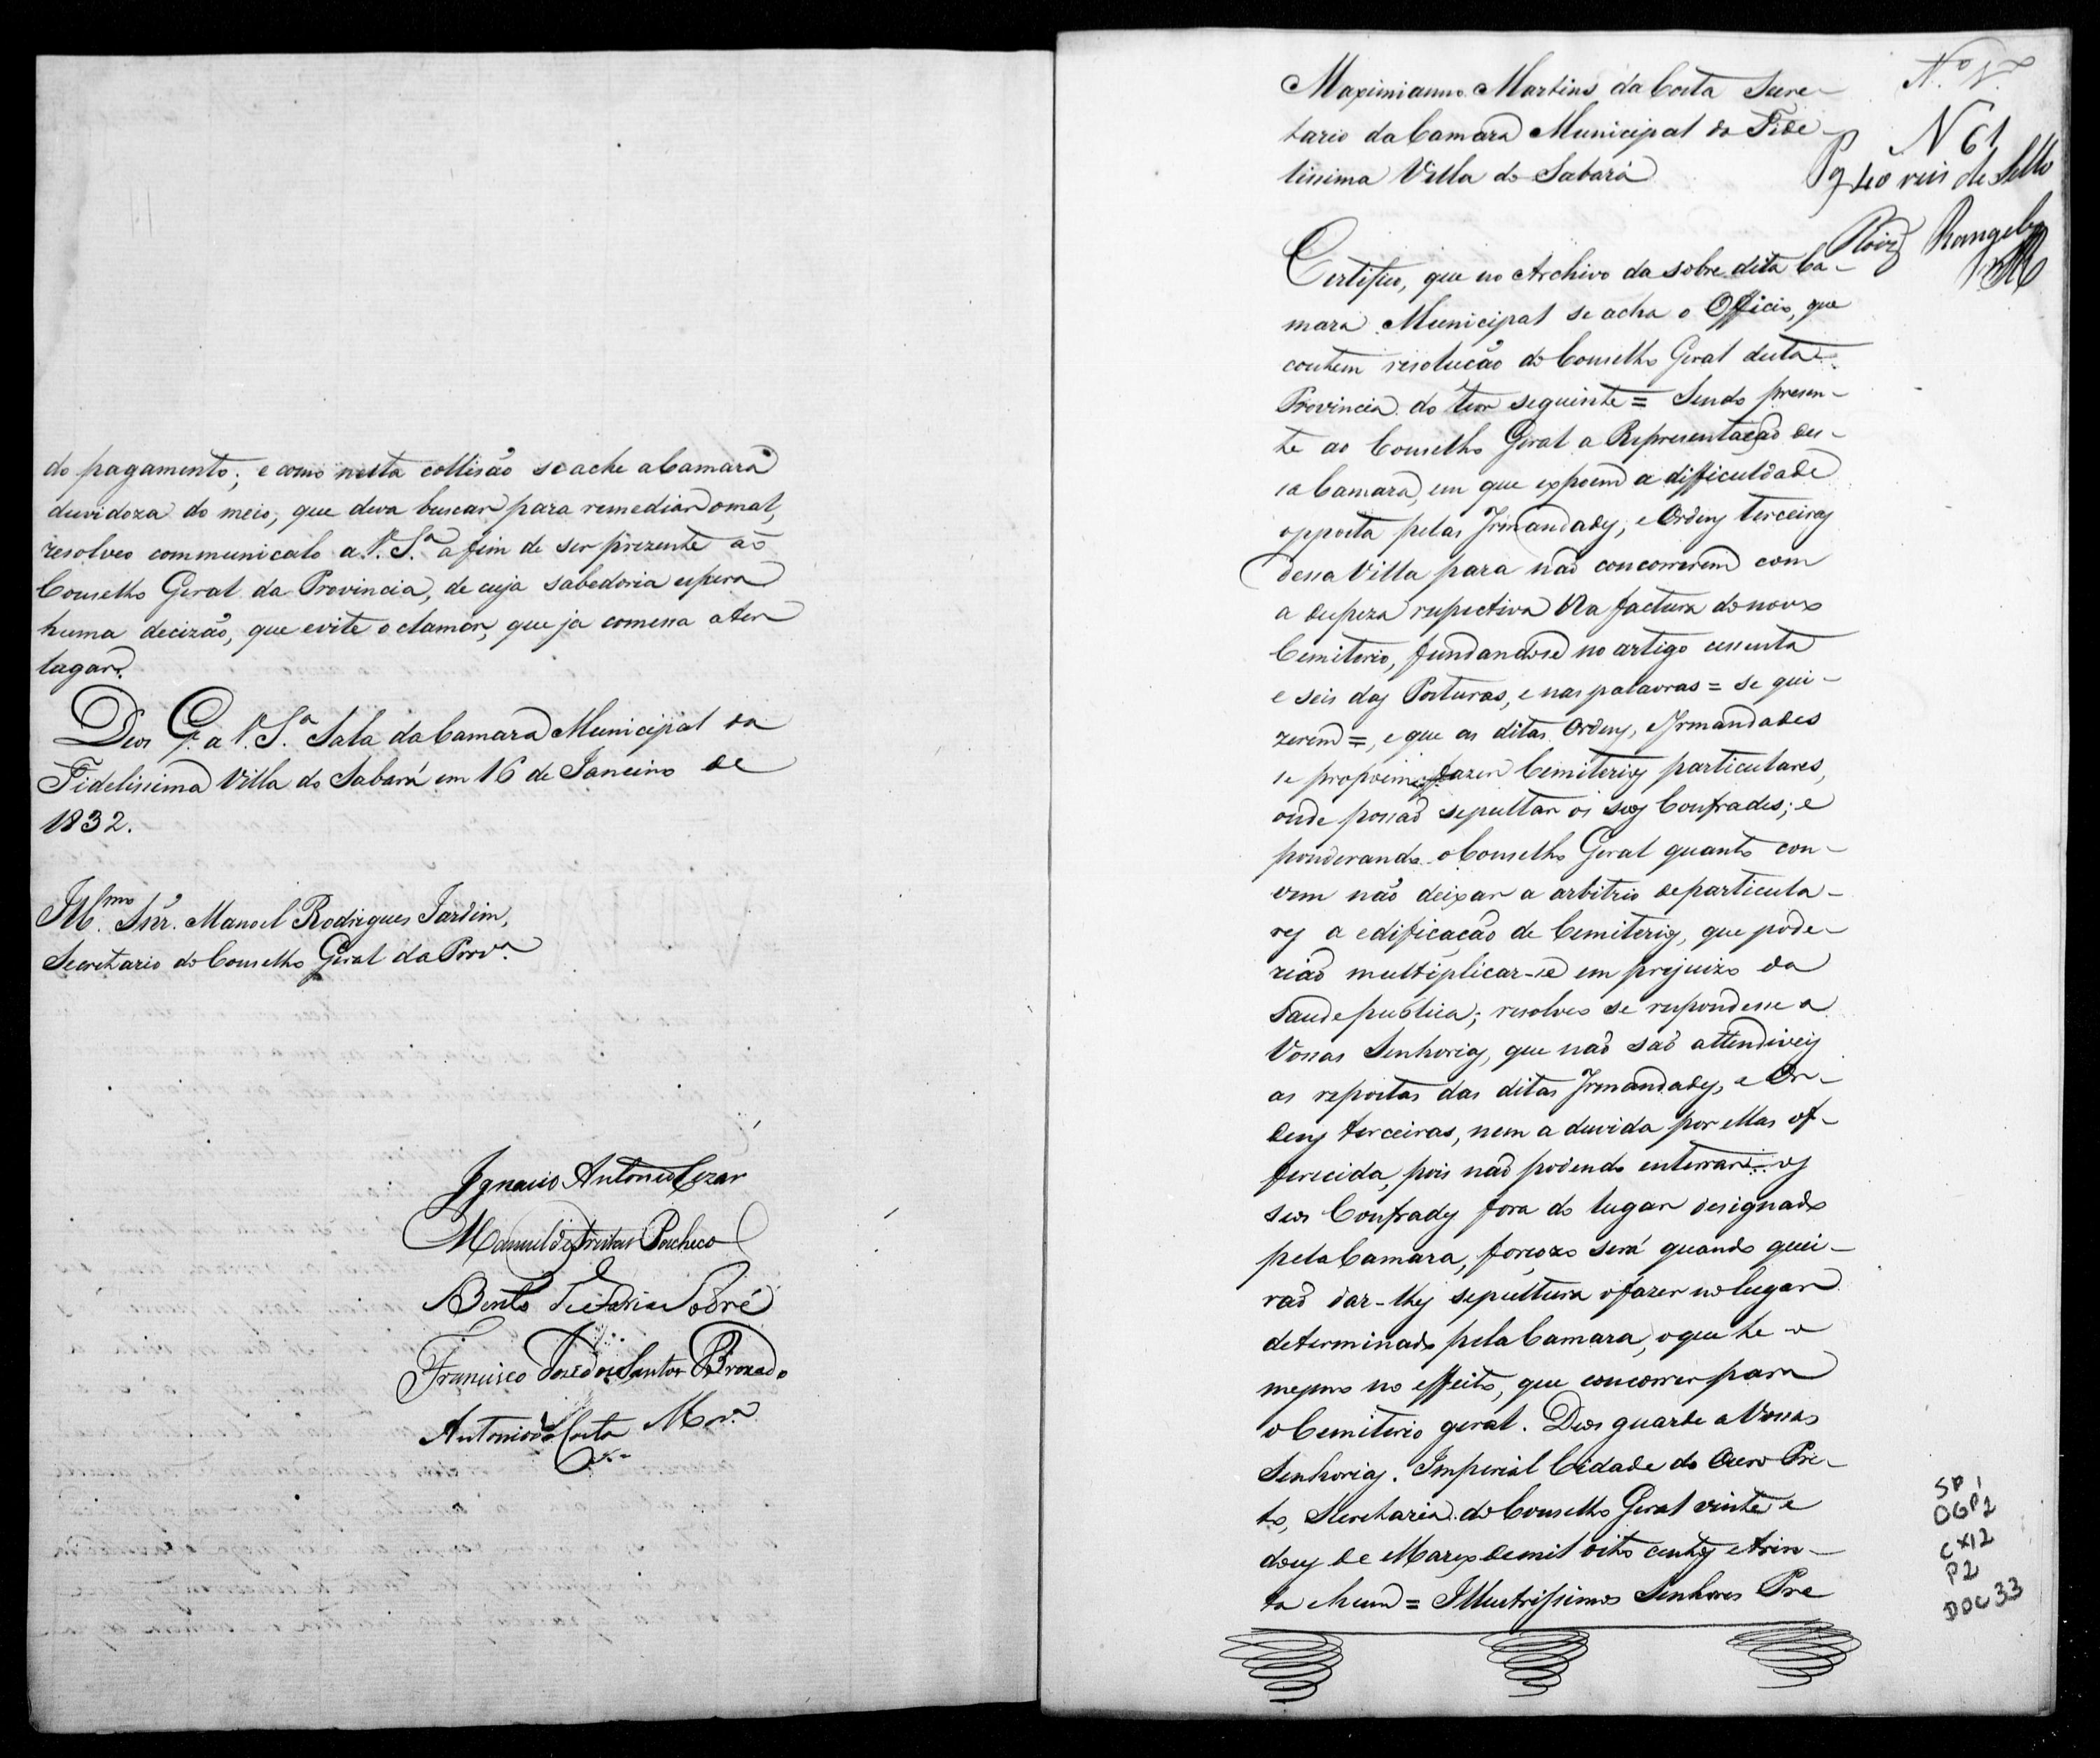 do pagamento; e como nesta collisão se ache a Camara
duvidoza do meio, que deva buscar para remediar o mal,
resolveo communicalo a V. S.ª a fim de ser prezente ao
Conselho Geral da Provincia, de cuja sabedoria espera
huma decizão, que evite o clamor, que ja comessa a ter
lugar.
Deos G.e a V. S.ª Sala da Camara Municipal da
Fidelissima Villa do Sabará em 16 de Janeiro de
1832.
Ill.mo Snr. Manoel Rodrigues Jardim,
Secretario do Conselho Geral da Prov.ª
Ignacio Antonio Cezar
Manuel de Freitas Pacheco
Bento de Faria Sodré
Francisco Joze dos Santos Brozado
Antonio da Costa Mor.ª
Maximianno Martins da Costa Secre-
tario da Camara Municipal da Fide-
lissima Villa do Sabará
Nº V.
N 61
Pg 40 reis de Sello
Rangel
Certifico, que no Archivo da sobre dita Ca-
mara Municipal se acha o Officio, que
contem resolução do Conselho Geral desta
Provincia do teor seguinte = Sendo presen-
te ao Conselho Geral a Representação des-
sa Camara, em que expoem a difficuldade
opposta pelas Irmandades, e Ordens terceiras
dessa Villa para não concorrerem com
a despeza respectiva na factura do novo
Cemiterio, fundandose no artigo cessenta
e seis das Posturas, e nas palavras = se qui-
zerem =, e que as ditas Ordens, e Irmandades
se propoem fazer Cemiterios particulares,
onde possaõ sepultar os seos Confrades; e
ponderando o Conselho Geral quanto con-
vem não deixar a arbitrio de particula-
res a edificação de Cemiterios, que pode-
riaõ multiplicar-se em prejuizo da
Saude publica; resolveo se respondesse a
Vossas Senhorias, que naõ saõ attendiveis
as repostas das ditas Irmandades, e Or-
dens terceiras, nem a duvida por ellas of-
ferecida, pois naõ podendo enterrar os
seos Confrades fora do lugar designado
pela Camara, forçozo será quando quei-
raõ dar-lhes sepultura o fazer no lugar
determinado pela Camara, o que he o
mesmo no effeito, que concorrer para
o Cemiterio geral. Deos guarde a Vossas
Senhorias. Imperial Cidade do Ouro Pre-
to, Secretaria do Conselho Geral vinte e
dous de Março de mil oito centos e trin-
ta e hum = Illustrissimos Senhores Pre
SP 1
OGP 2
CX 12
P2
DOC 33